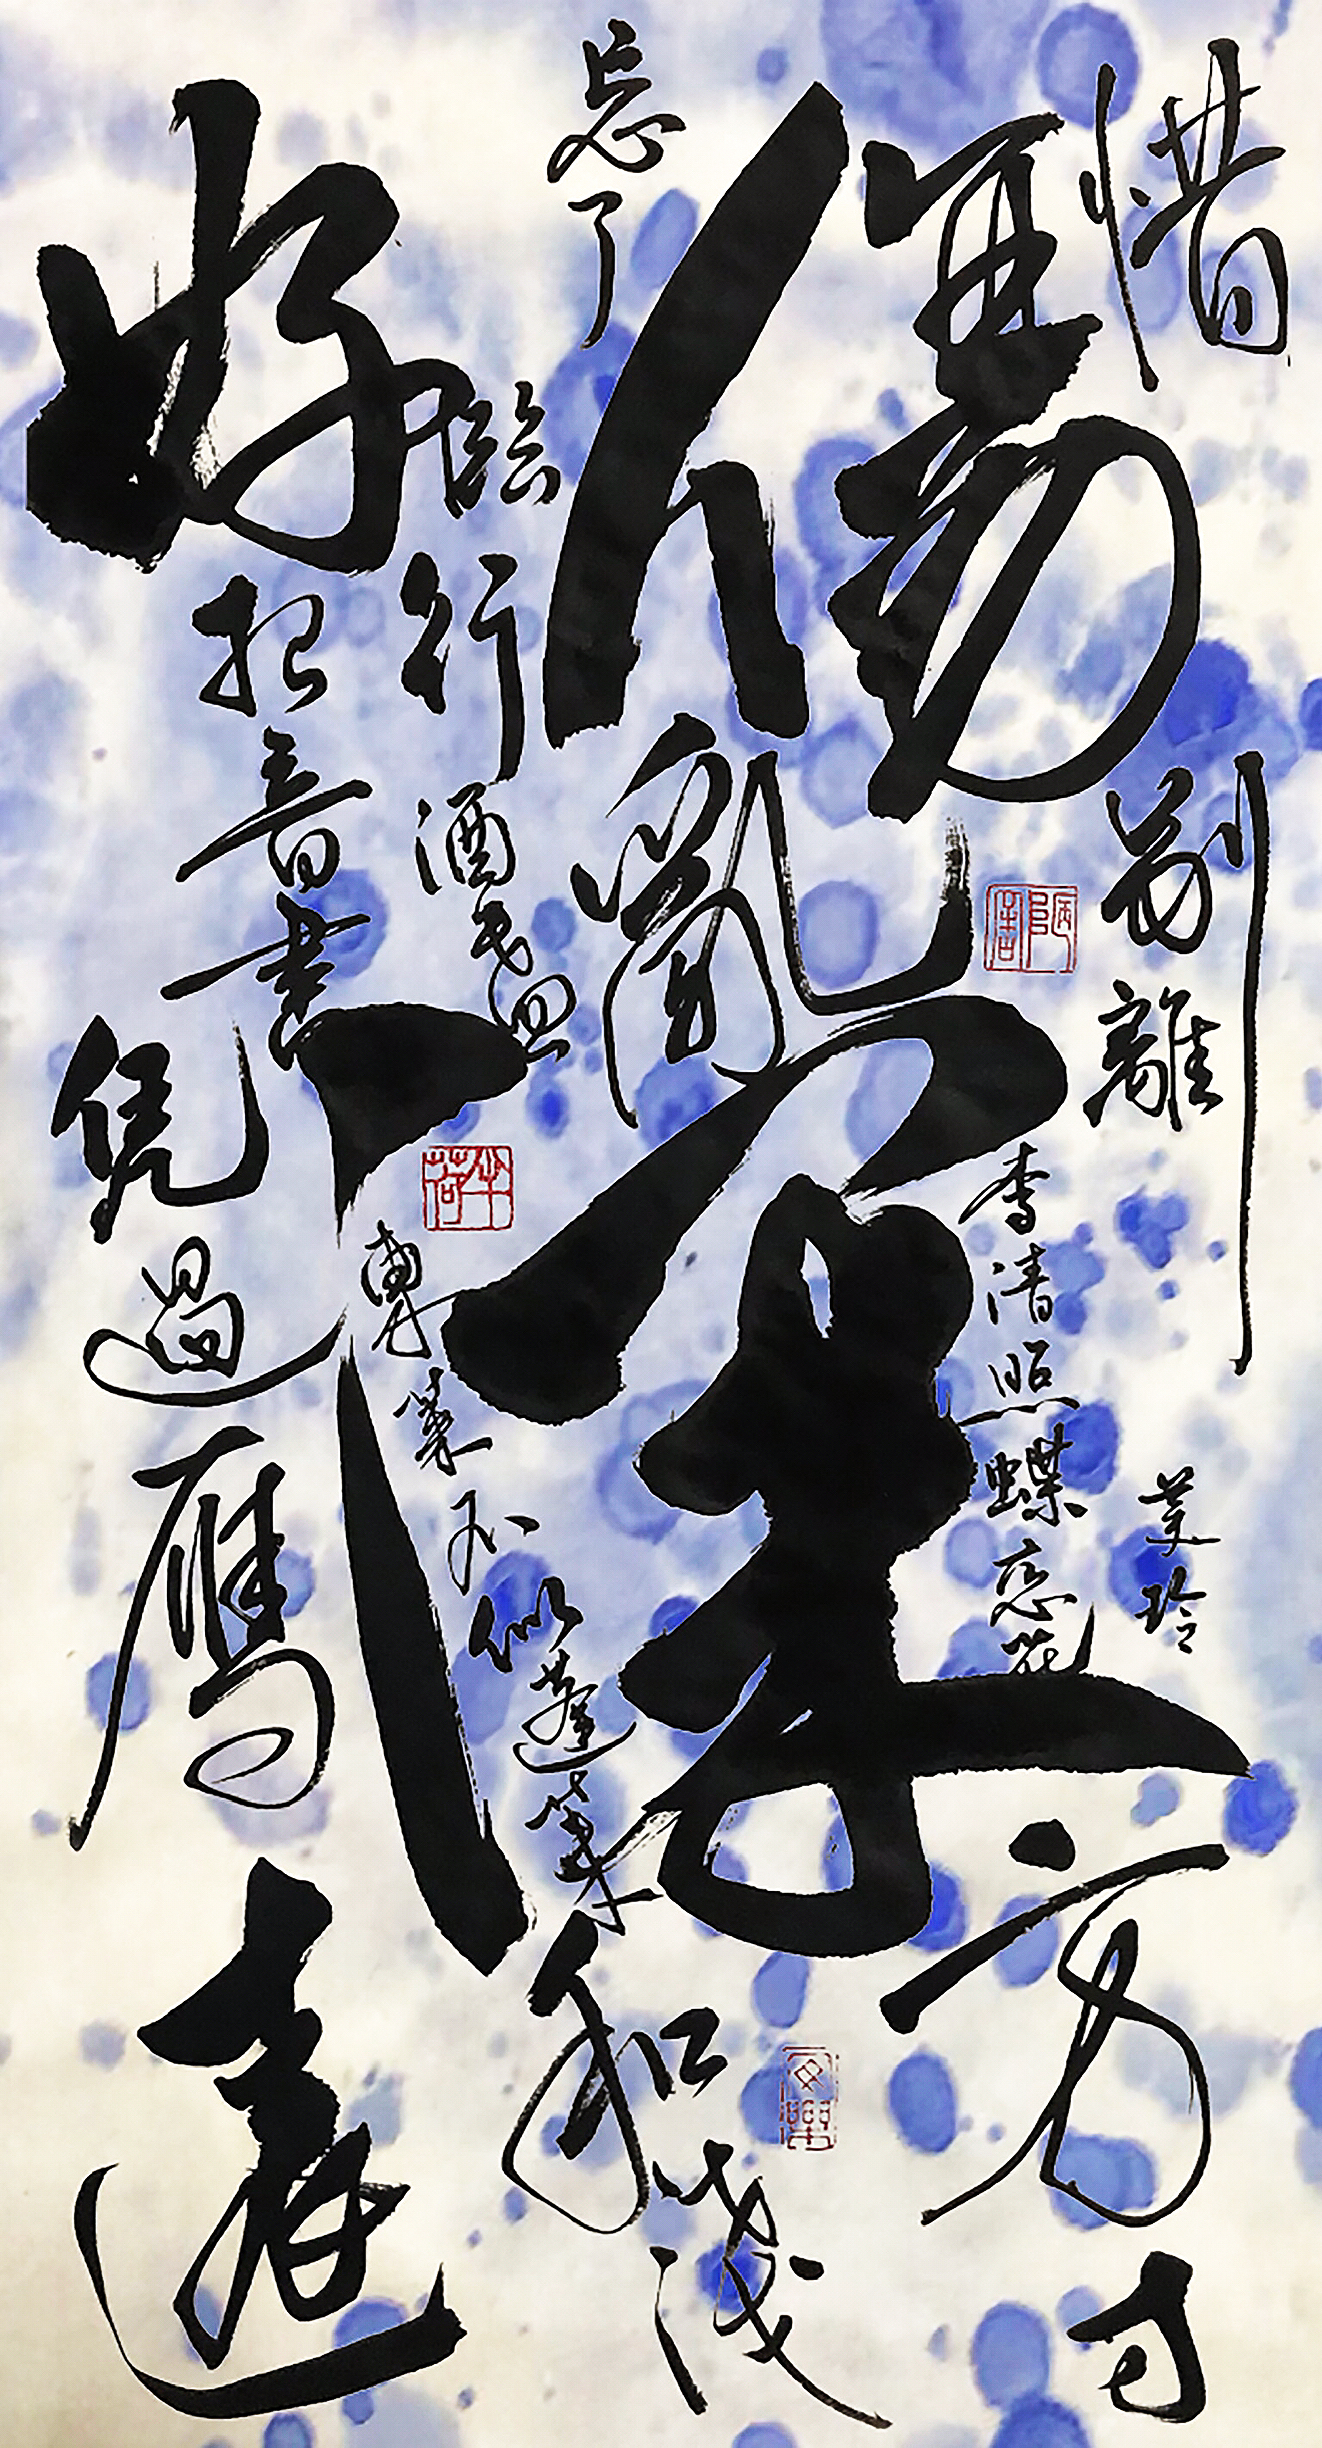 惜别
傷離
方寸
亂
忘了
臨行
酒盏
深
和浅
好把音書
凭過雁
東萊不似蓬萊
遠
李清照蝶恋花
美玲